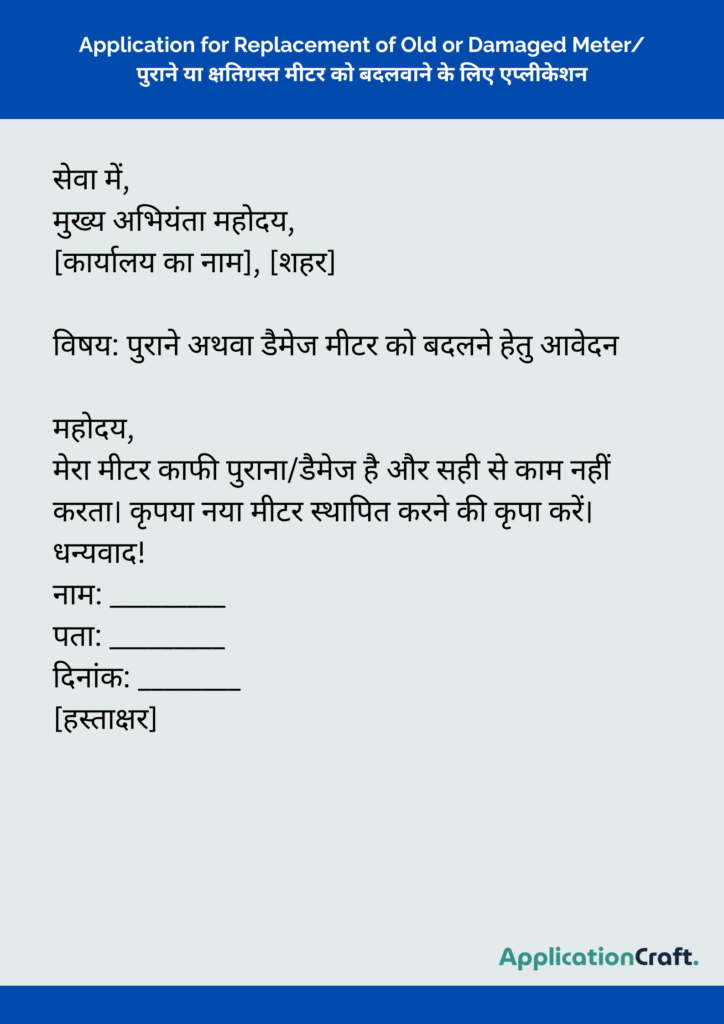 Application for Replacement of Old or Damaged Meter/
पुराने या क्षतिग्रस्त मीटर को बदलवाने के लिए एप्लीकेशन
सेवा में,
मुख्य अभियंता महोदय,
[कार्यालय का नाम], [शहर]
विषय: पुराने अथवा डैमेज मीटर को बदलने हेतु आवेदन
महोदय,
मेरा मीटर काफी पुराना/डैमेज है और सही से काम नहीं
करता। कृपया नया मीटर स्थापित करने की कृपा करें।
धन्यवाद!
नाम: _________
पता: _________
दिनांक: ________
[हस्ताक्षर]
ApplicationCraft.